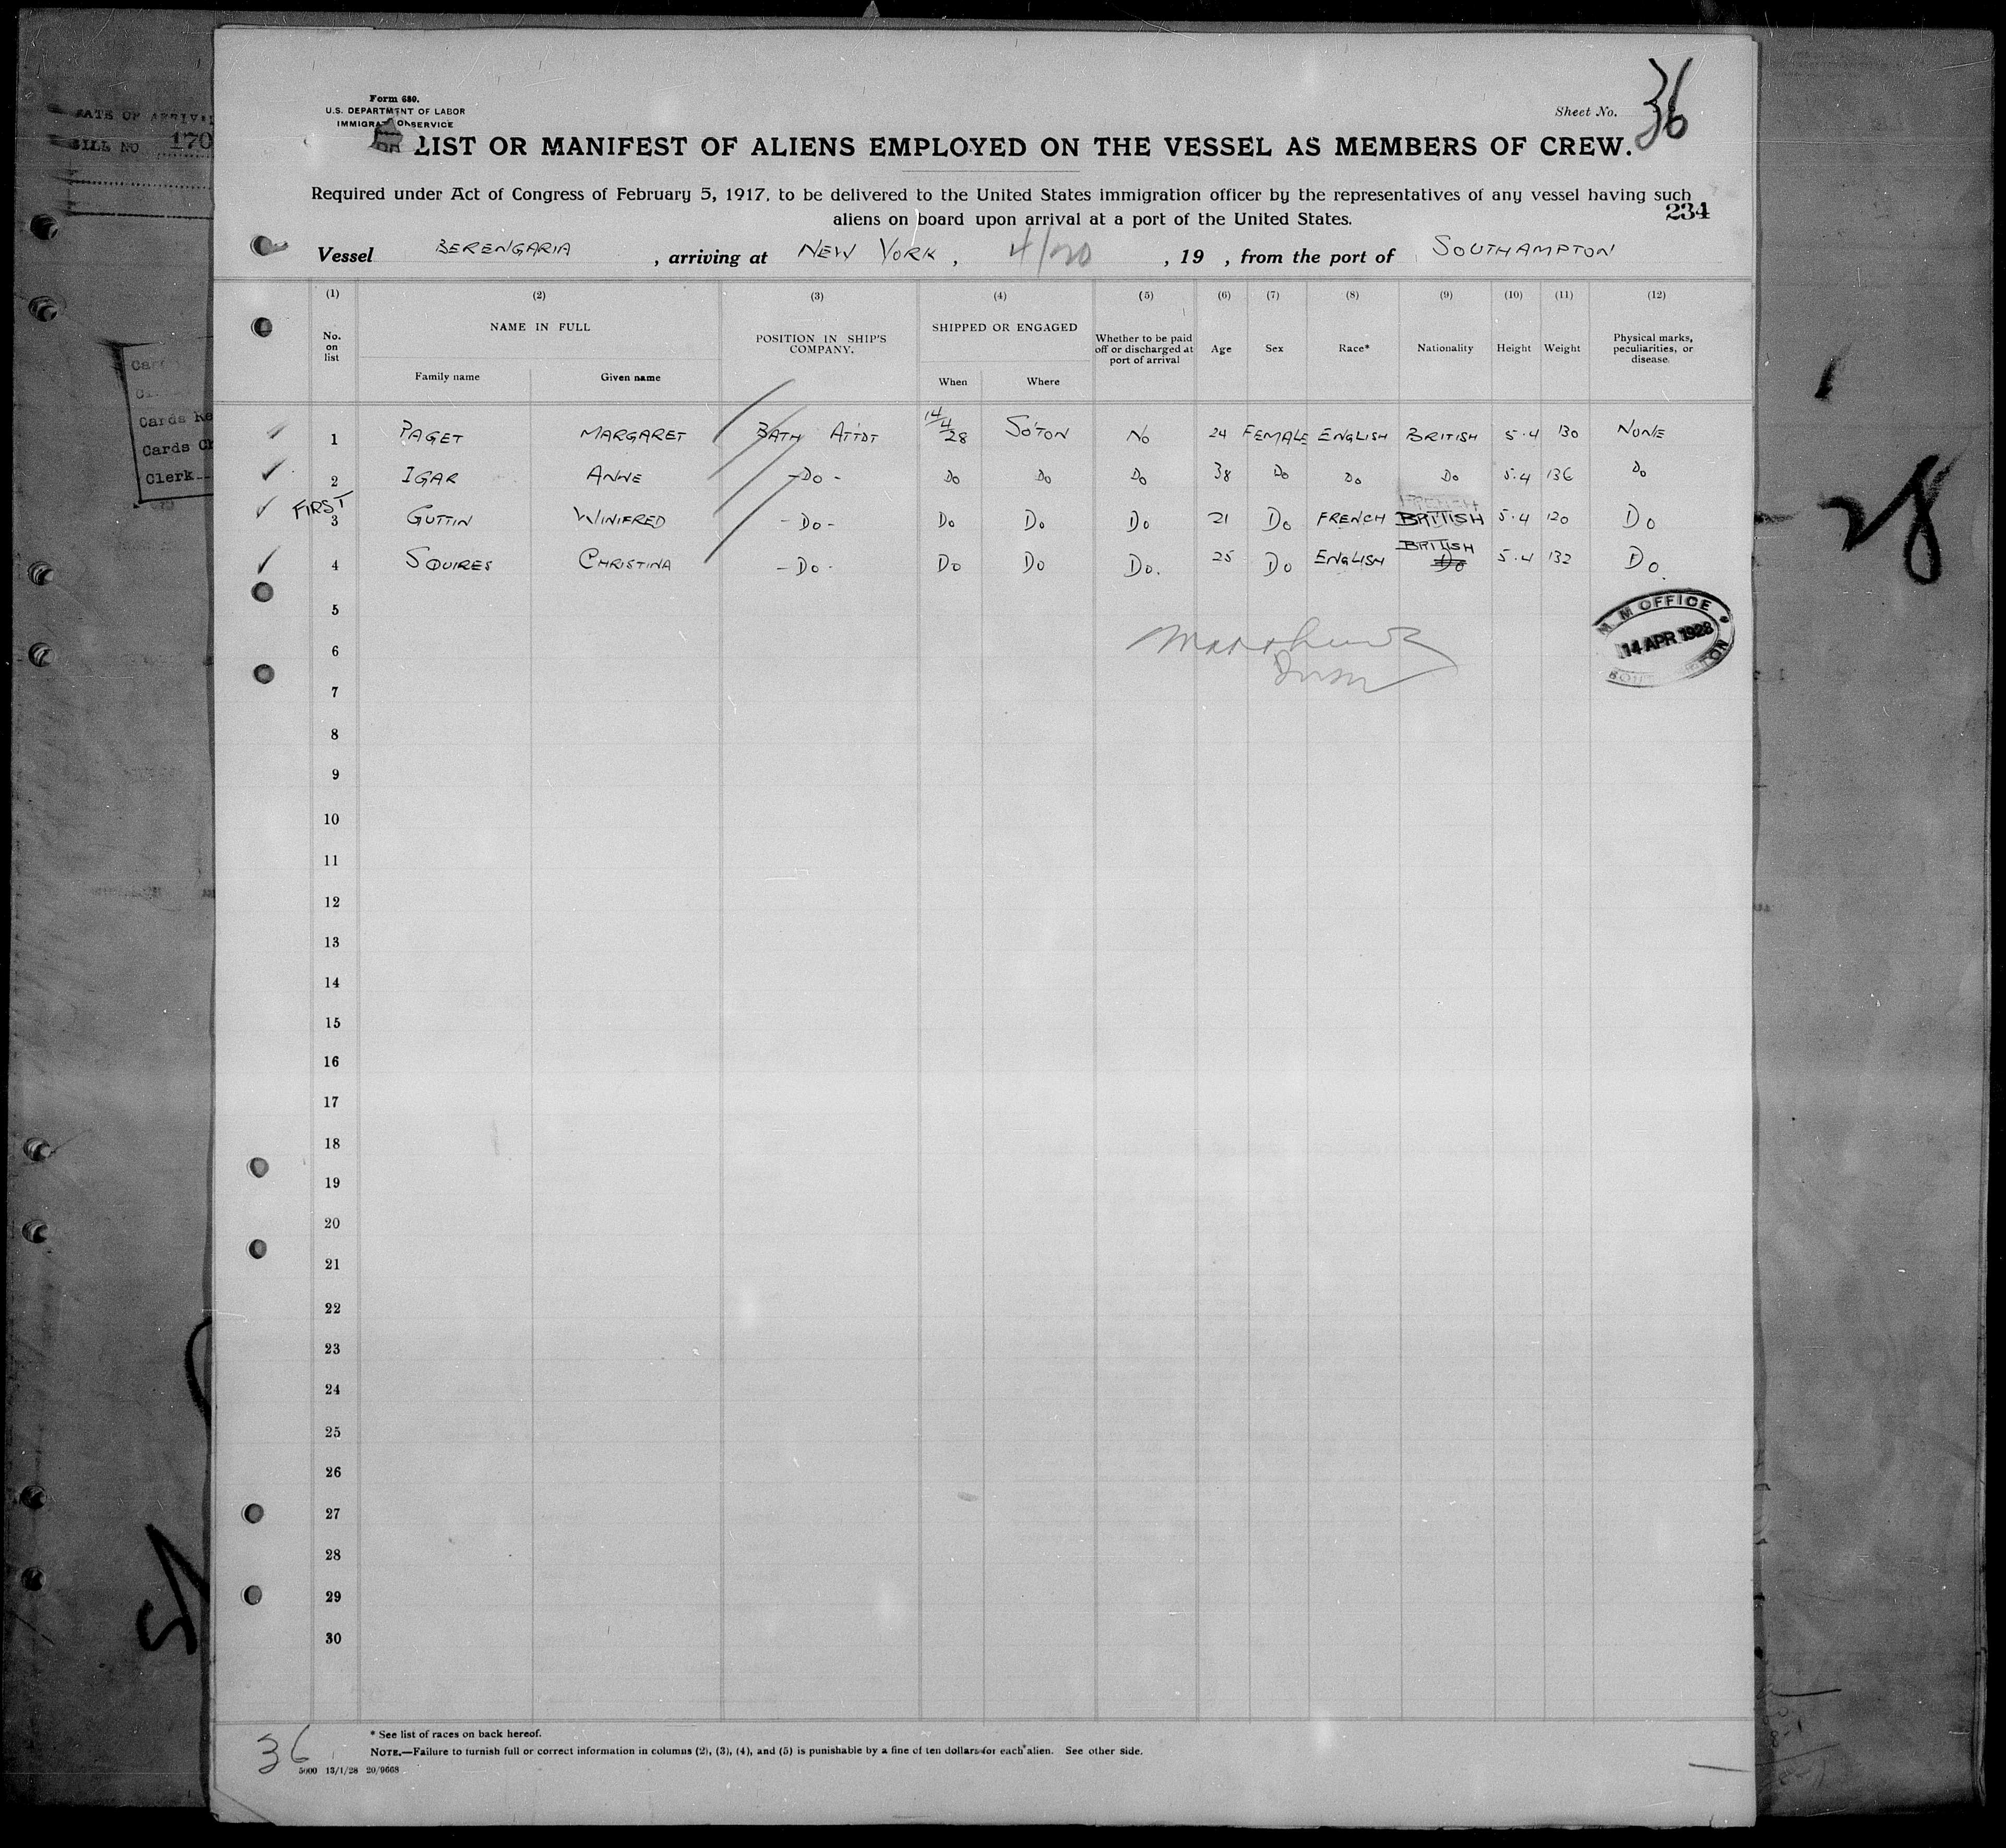 DATE OF ARRIVAL
BILL NO 170
Cards Re
Cards Ch
Clerk
Form 680.
U.S. DEPARTMENT OF LABOR
IMMIGRATION SERVICE
Sheet No. 36
LIST OR MANIFEST OF ALIENS EMPLOYED ON THE VESSEL AS MEMBERS OF CREW.
Required under Act of Congress of February 5, 1917, to be delivered to the United States immigration officer by the representatives of any vessel having such
aliens on board upon arrival at a port of the United States.
234
Vessel BERENGARIA , arriving at NEW YORK , 4/20 , 19 , from the port of SOUTHAMPTON
(1) (2) (3) (4) (5) (6) (7) (8) (9) (10) (11) (12)
No. on list NAME IN FULL Family name Given name POSITION IN SHIP'S COMPANY. SHIPPED OR ENGAGED When Where Whether to be paid off or discharged at port of arrival Age Sex Race* Nationality Height Weight Physical marks, peculiarities, or disease.
1 PAGET MARGARET BATH ATTDT 14/4/28 SOTON NO 24 FEMALE ENGLISH BRITISH 5.4 130 NONE
2 IGAR ANNE -DO- DO DO DO 38 DO DO DO 5.4 136 DO
FIRST 3 GUTTIN WINIFRED -DO- DO DO DO 21 DO FRENCH FRENCH BRITISH 5.4 120 DO
4 SQUIRES CHRISTINA -DO- DO DO DO. 25 DO ENGLISH BRITISH DO 5.4 132 DO.
5
M M OFFICE
14 APR 1928
6
7
8
9
10
11
12
13
14
15
16
17
18
19
20
21
22
23
24
25
26
27
28
29
30
28
36
* See list of races on back hereof.
NOTE.—Failure to furnish full or correct information in columns (2), (3), (4), and (5) is punishable by a fine of ten dollars for each alien. See other side.
5000 13/1/28 20/9668